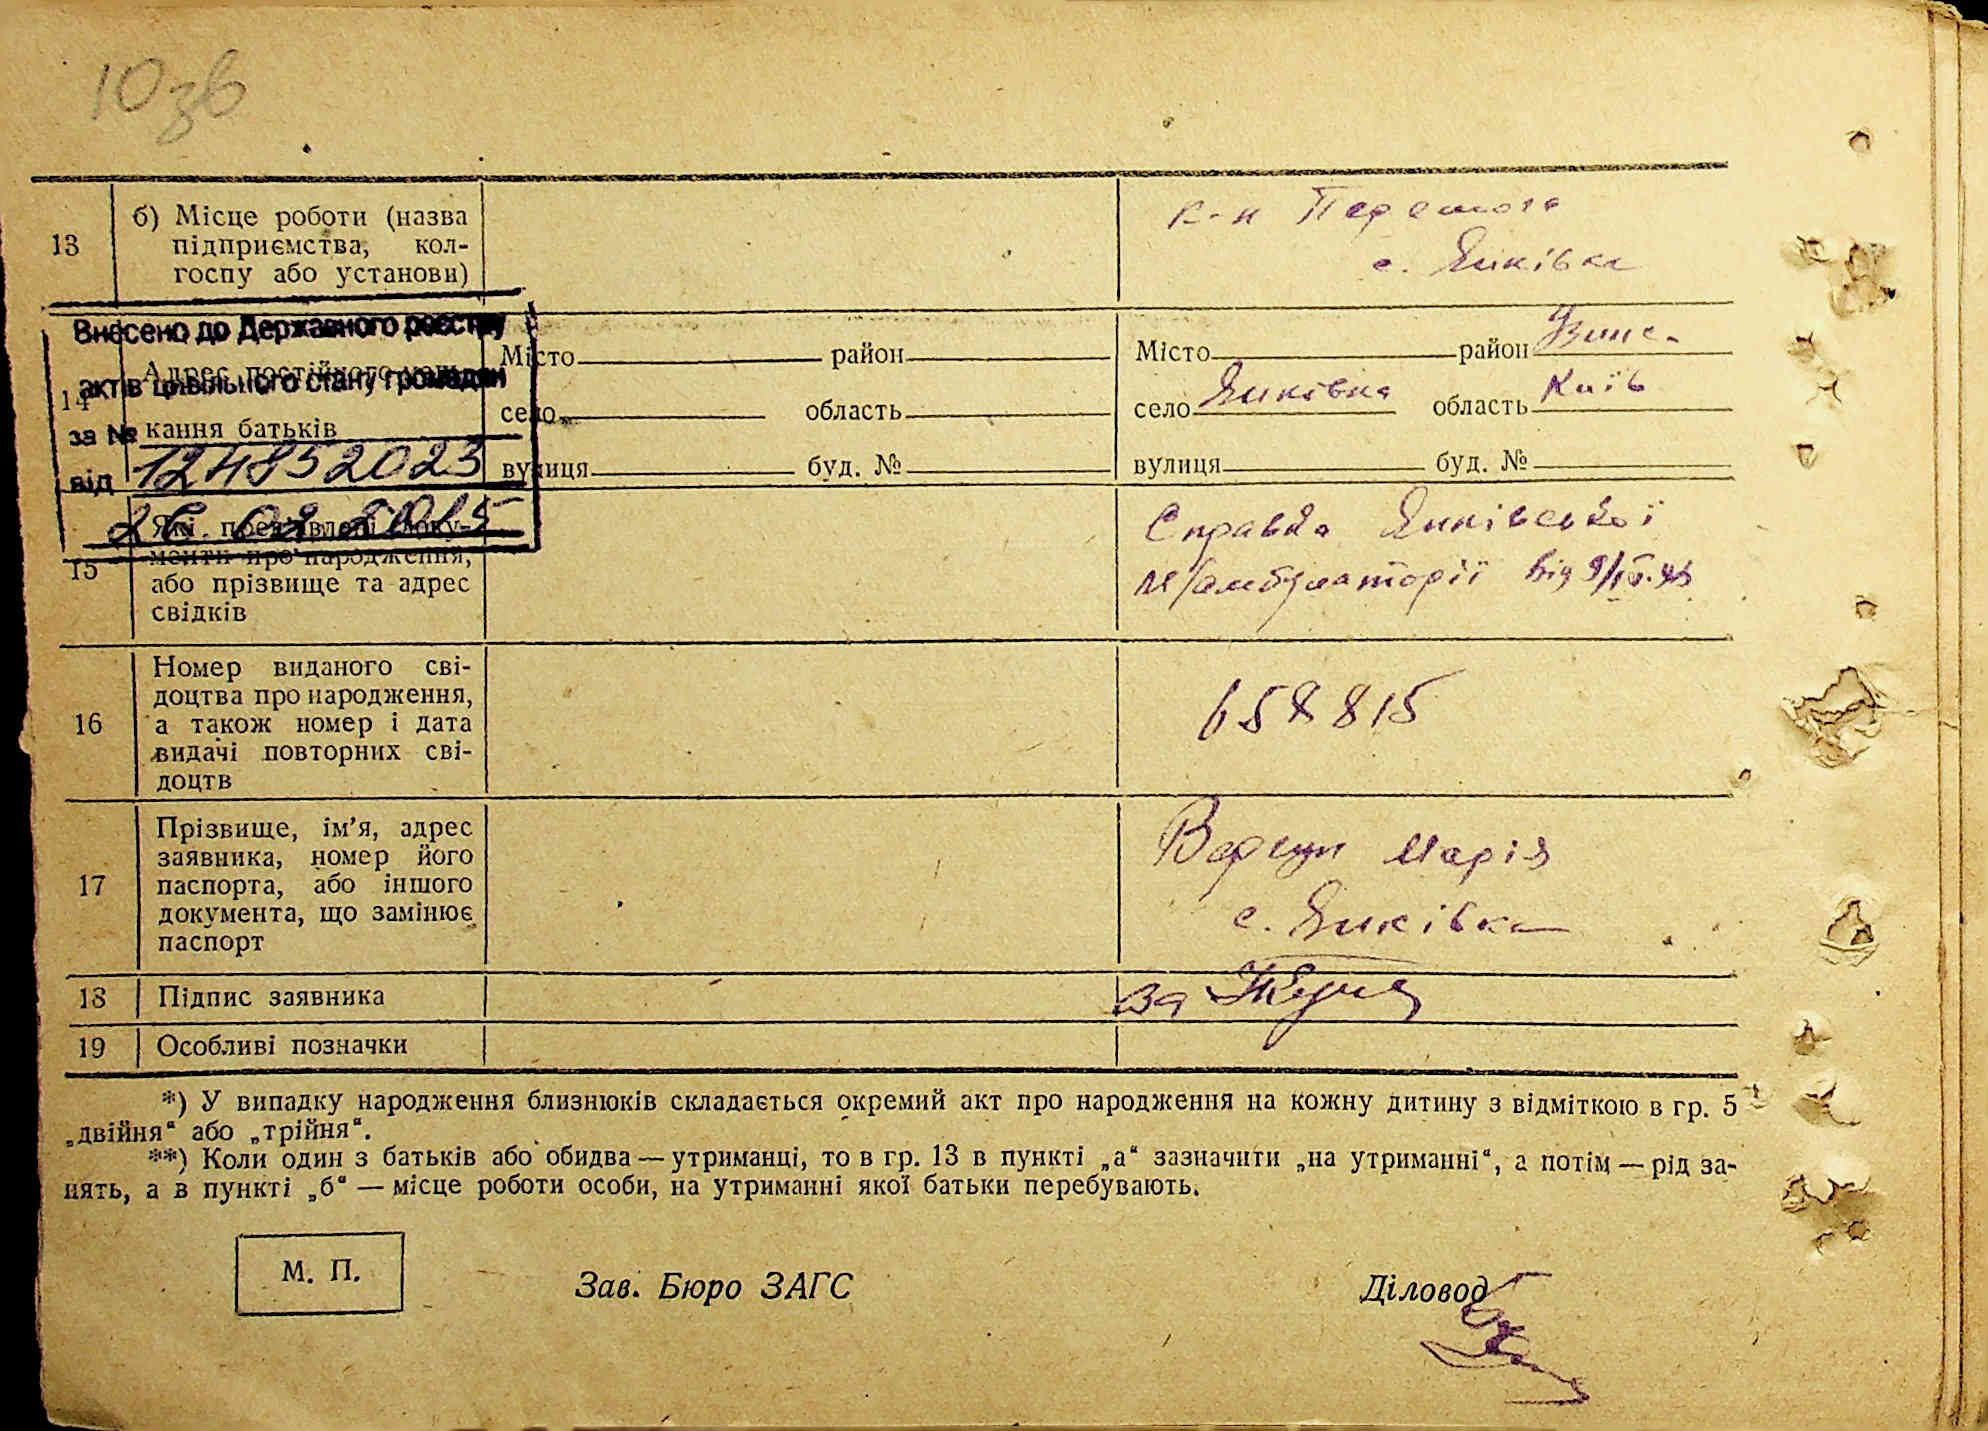 10 зв
13
б) Місце роботи (назва
підприємства, кол-
госпу або установи)
к-п Перемога
с. Янківка
Внесено до Державного реєстру
актів цивільного стану громадян
за №
12485 2023
від
26. 02 2015
14
Адрес постійного
кання батьків
Місто район
село область
вулиця буд. №
Місто район Узинс.
село Янківка область Київ
вулиця буд. №
15
Які пред'явлені доку-
менти про народження,
або прізвище та адрес
свідків
Справка Янківської
м/амбулаторії від 9/IV.45
16
Номер виданого сві-
доцтва про народження,
а також номер і дата
видачі повторних сві-
доцтв
658815
17
Прізвище, ім'я, адрес
заявника, номер його
паспорта, або іншого
документа, що замінює
паспорт
Вергун Марія
с. Янківка
18
Підпис заявника
за
19
Особливі позначки
*) У випадку народження близнюків складається окремий акт про народження на кожну дитину з відміткою в гр. 5
„двійня“ або „трійня“.
**) Коли один з батьків або обидва — утриманці, то в гр. 13 в пункті „а“ зазначити „на утриманні“, а потім — рід за-
нять, а в пункті „б“ — місце роботи особи, на утриманні якої батьки перебувають.
М. П.
Зав. Бюро ЗАГС
Діловод